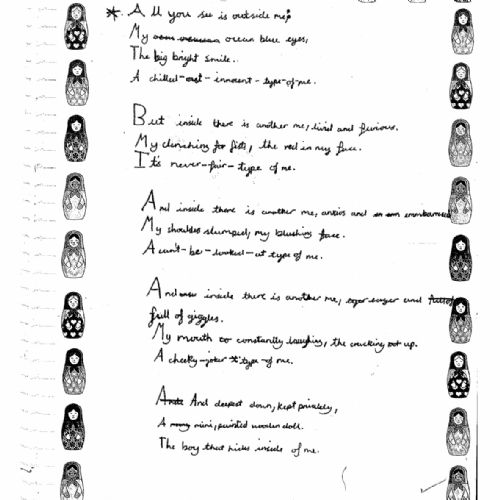 *. All you see is outside me;
My ocean blue eyes,
The big bright smile.
A chilled-out-innocent-type-of-me.
But inside there is another me, livid and furious.
My clenching for fists, the red in my face.
It's never-fair-type of me.
And inside there is another me, anxios and embarrased
My shoulders slumped, my blushing face.
A can't-be-looked-at type of me.
And inside there is another me, eager and
full of giggles.
My mouth constantly laughing, the cracking out up.
A cheeky-joker type-of-me.
And deepest down, kept privately,
A mini, painted wooden doll.
The boy that hides inside of me.